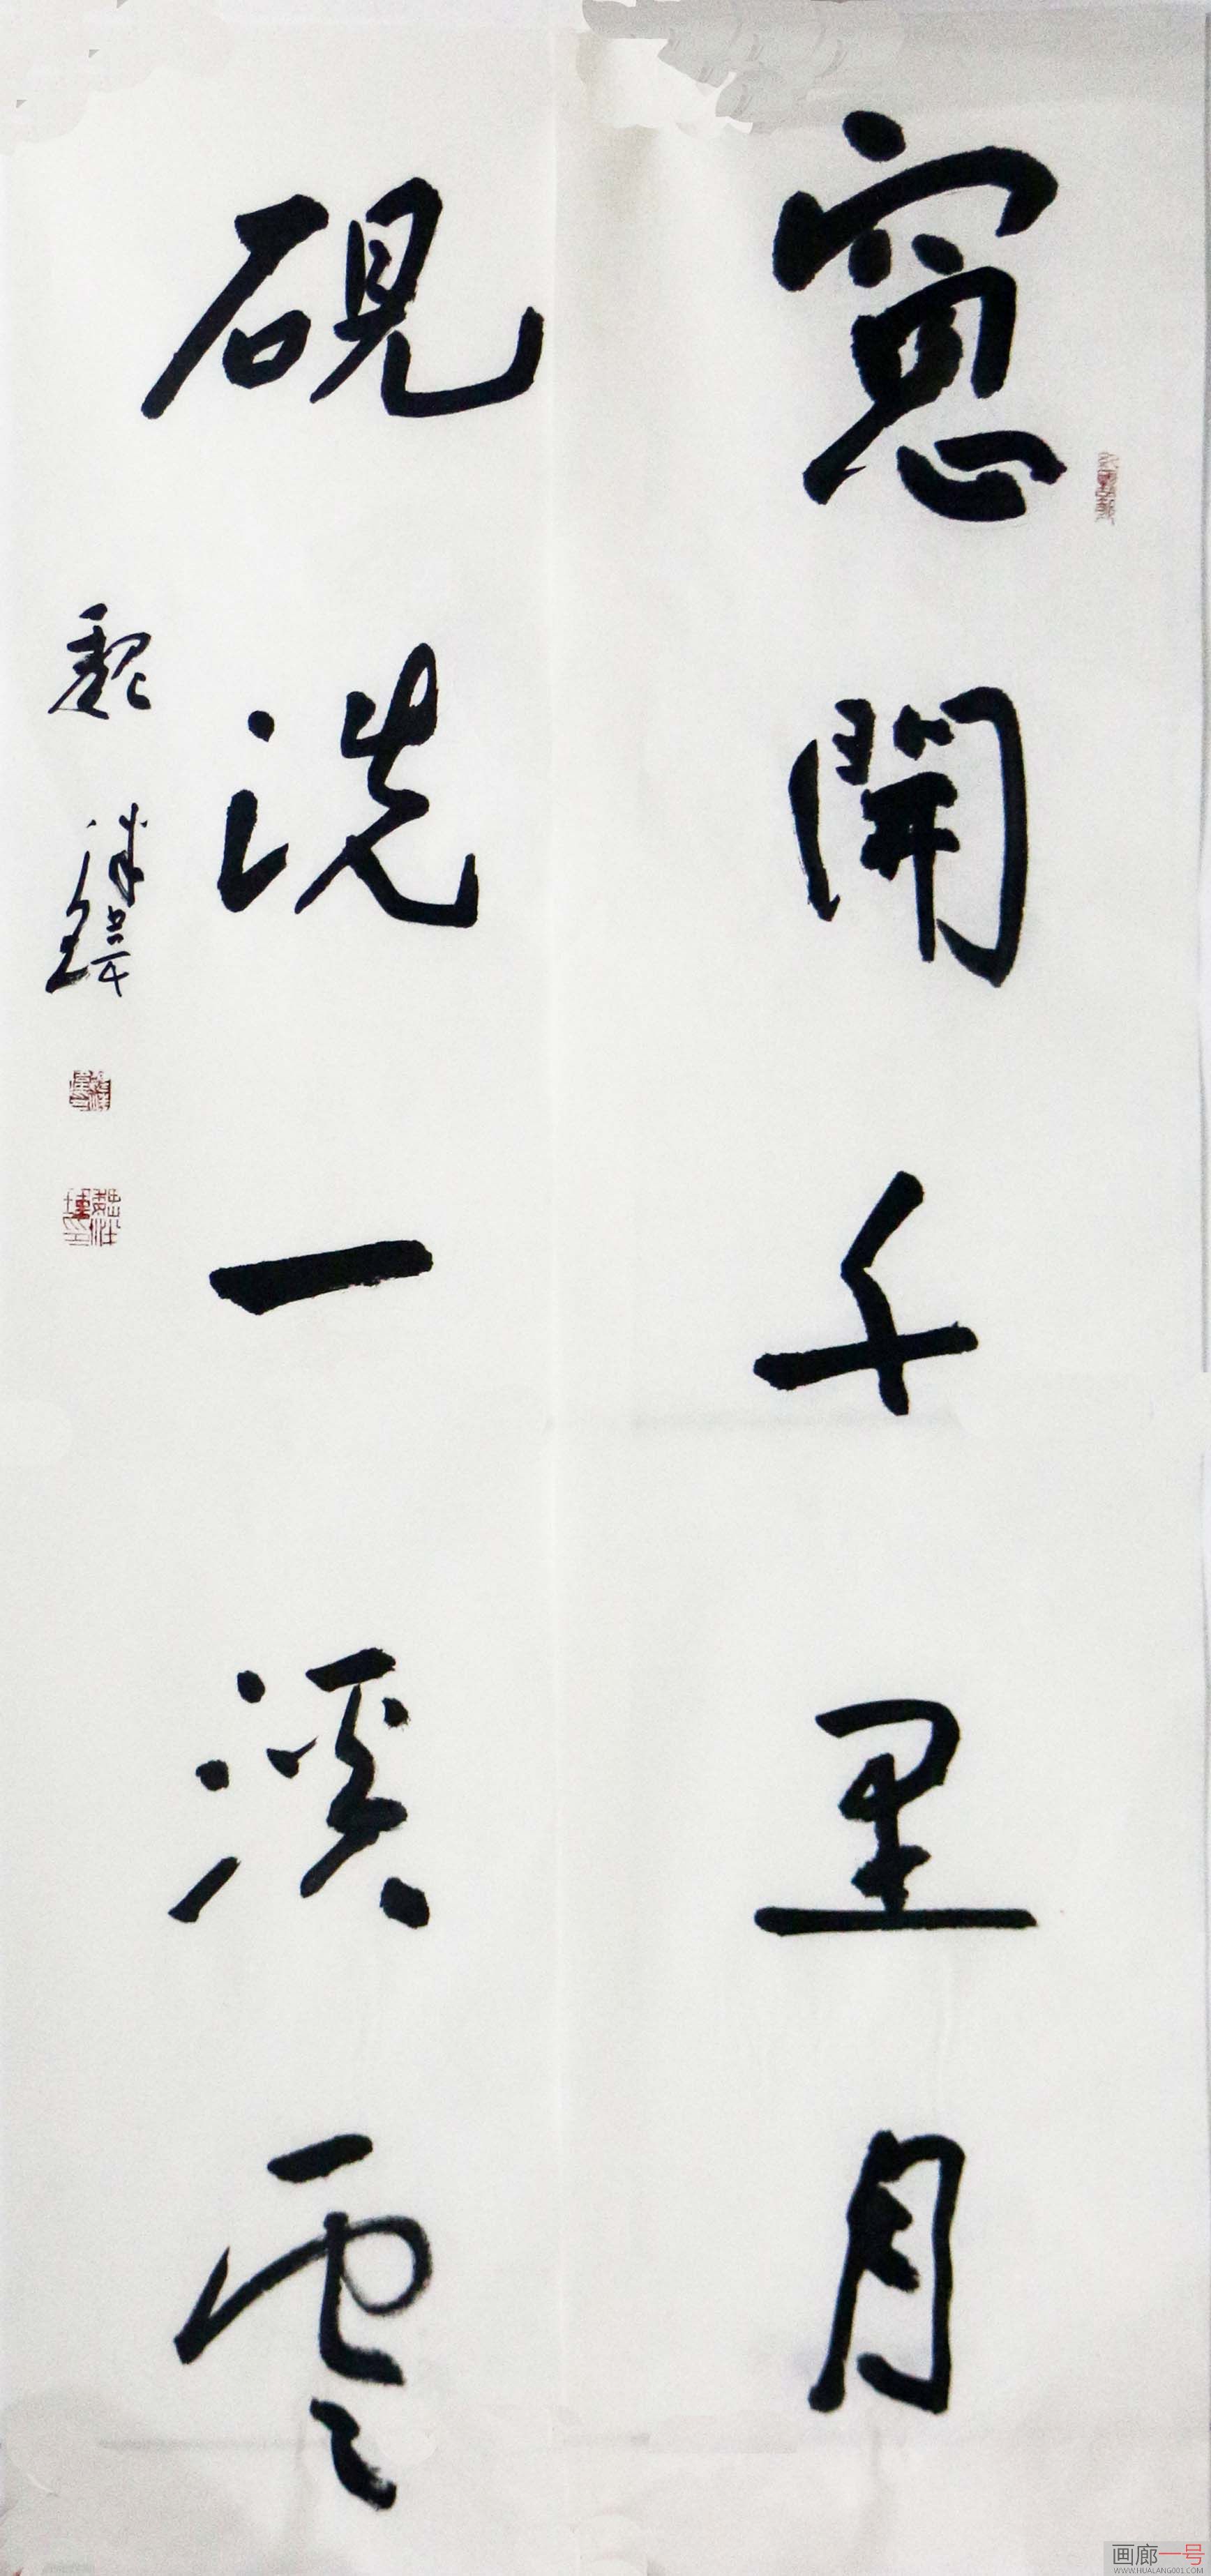 窻開千里月
硯洗一溪雲
魏
画廊一号
WWW.HUALANG001.COM